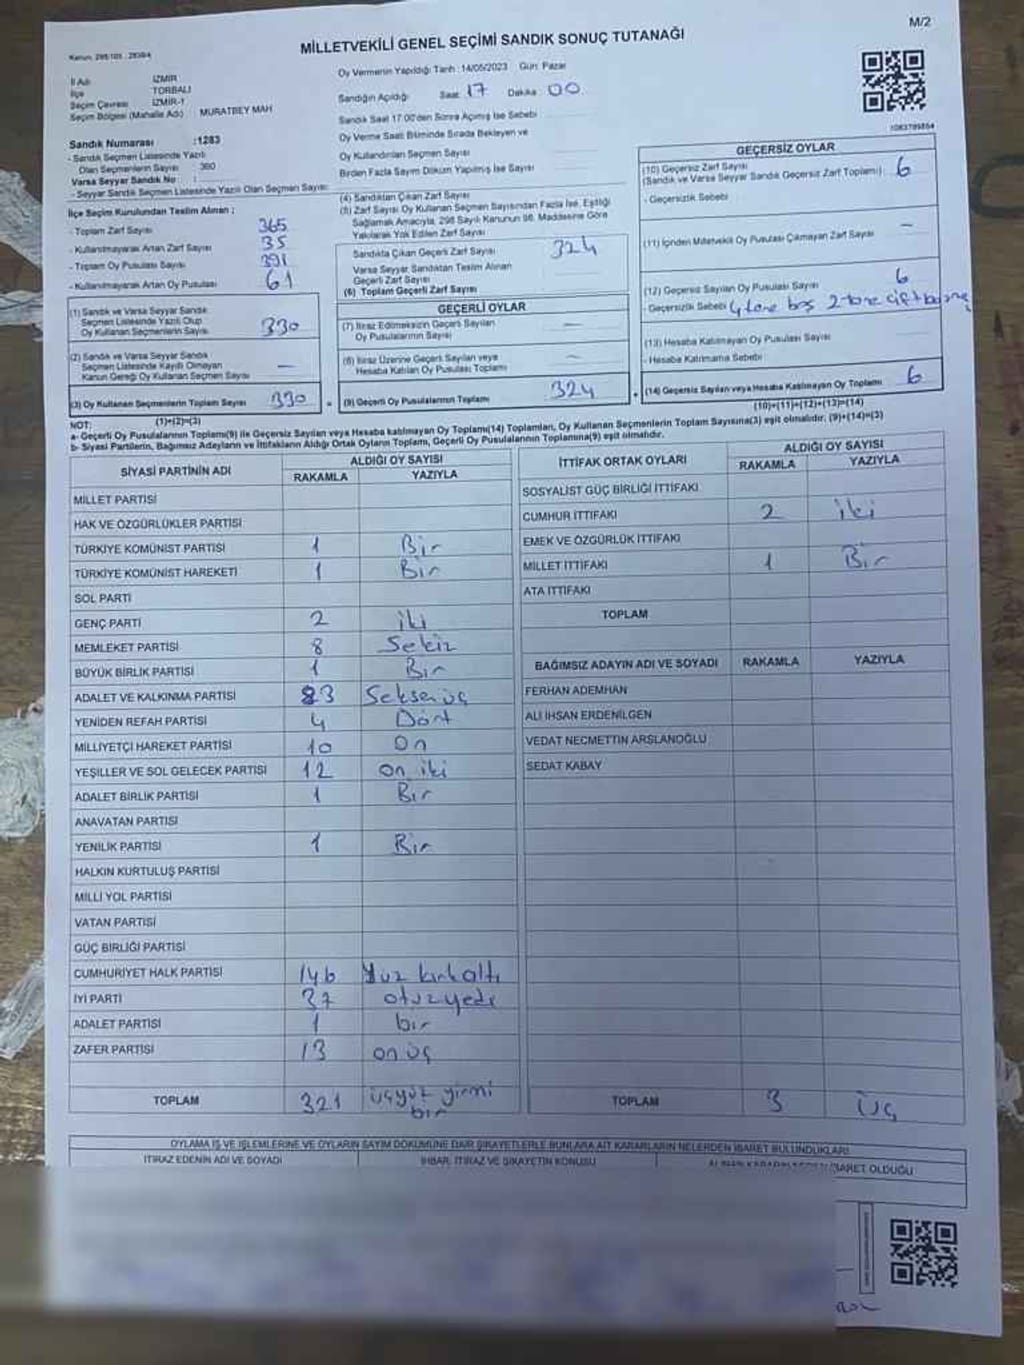 M/2
Kanun: 298/105 - 2839/4
MİLLETVEKİLİ GENEL SEÇİMİ SANDIK SONUÇ TUTANAĞI
İl Adı İZMİR
İlçe TORBALI
Seçim Çevresi İZMİR-1
Seçim Bölgesi (Mahalle Adı) MURATBEY MAH
Sandık Numarası :1283
- Sandık Seçmen Listesinde Yazılı
Olan Seçmenlerin Sayısı 360
Varsa Seyyar Sandık No :
- Seyyar Sandık Seçmen Listesinde Yazılı Olan Seçmen Sayısı:
Oy Vermenin Yapıldığı Tarih :14/05/2023 Gün: Pazar
Sandığın Açıldığı Saat 17 Dakika 00
Sandık Saat 17:00'den Sonra Açılmış İse Sebebi
Oy Verme Saati Bitiminde Sırada Bekleyen ve
Oy Kullandırılan Seçmen Sayısı
Birden Fazla Sayım Döküm Yapılmış İse Sayısı
İlçe Seçim Kurulundan Teslim Alınan ;
- Toplam Zarf Sayısı 365
- Kullanılmayarak Artan Zarf Sayısı 35
- Toplam Oy Pusulası Sayısı 391
- Kullanılmayarak Artan Oy Pusulası 61
(1) Sandık ve Varsa Seyyar Sandık
Seçmen Listesinde Yazılı Olup
Oy Kullanan Seçmenlerin Sayısı 330
(2) Sandık ve Varsa Seyyar Sandık
Seçmen Listesinde Kayıtlı Olmayan
Kanun Gereği Oy Kullanan Seçmen Sayısı —
(3) Oy Kullanan Seçmenlerin Toplam Sayısı 330
(1)+(2)=(3)
(4) Sandıktan Çıkan Zarf Sayısı
(5) Zarf Sayısı Oy Kullanan Seçmen Sayısından Fazla İse, Eşitliği
Sağlamak Amacıyla, 298 Sayılı Kanunun 98. Maddesine Göre
Yakılarak Yok Edilen Zarf Sayısı
Sandıkta Çıkan Geçerli Zarf Sayısı 324
Varsa Seyyar Sandıktan Teslim Alınan
Geçerli Zarf Sayısı
(6) Toplam Geçerli Zarf Sayısı
GEÇERLİ OYLAR
(7) İtiraz Edilmeksizin Geçerli Sayılan
Oy Pusulalarının Sayısı —
(8) İtiraz Üzerine Geçerli Sayılan veya
Hesaba Katılan Oy Pusulası Toplamı —
(9) Geçerli Oy Pusulalarının Toplamı 324
1083795854
GEÇERSİZ OYLAR
(10) Geçersiz Zarf Sayısı
(Sandık ve Varsa Seyyar Sandık Geçersiz Zarf Toplamı): 6
- Geçersizlik Sebebi
(11) İçinden Milletvekili Oy Pusulası Çıkmayan Zarf Sayısı —
(12) Geçersiz Sayılan Oy Pusulası Sayısı 6
- Geçersizlik Sebebi 4 tane boş 2 tane çift basmış
(13) Hesaba Katılmayan Oy Pusulası Sayısı
- Hesaba Katılmama Sebebi
(14) Geçersiz Sayılan veya Hesaba Katılmayan Oy Toplamı 6
(10)+(11)+(12)+(13)=(14)
NOT:
a- Geçerli Oy Pusulalarının Toplamı(9) ile Geçersiz Sayılan veya Hesaba katılmayan Oy Toplamı(14) Toplamları, Oy Kullanan Seçmenlerin Toplam Sayısına(3) eşit olmalıdır. (9)+(14)=(3)
b- Siyasi Partilerin, Bağımsız Adayların ve İttifakların Aldığı Ortak Oyların Toplamı, Geçerli Oy Pusulalarının Toplamına(9) eşit olmalıdır.
SİYASİ PARTİNİN ADI ALDIĞI OY SAYISI
RAKAMLA YAZIYLA
MİLLET PARTİSİ
HAK VE ÖZGÜRLÜKLER PARTİSİ
TÜRKİYE KOMÜNİST PARTİSİ 1 Bir
TÜRKİYE KOMÜNİST HAREKETİ 1 Bir
SOL PARTİ
GENÇ PARTİ 2 iki
MEMLEKET PARTİSİ 8 Sekiz
BÜYÜK BİRLİK PARTİSİ 1 Bir
ADALET VE KALKINMA PARTİSİ 83 Seksenüç
YENİDEN REFAH PARTİSİ 4 Dört
MİLLİYETÇİ HAREKET PARTİSİ 10 On
YEŞİLLER VE SOL GELECEK PARTİSİ 12 on iki
ADALET BİRLİK PARTİSİ 1 Bir
ANAVATAN PARTİSİ
YENİLİK PARTİSİ 1 Bir
HALKIN KURTULUŞ PARTİSİ
MİLLİ YOL PARTİSİ
VATAN PARTİSİ
GÜÇ BİRLİĞİ PARTİSİ
CUMHURİYET HALK PARTİSİ 146 Yüz kırkaltı
İYİ PARTİ 37 otuzyedi
ADALET PARTİSİ 1 bir
ZAFER PARTİSİ 13 onüç
TOPLAM 321 üçyüz yirmi
bir
İTTİFAK ORTAK OYLARI ALDIĞI OY SAYISI
RAKAMLA YAZIYLA
SOSYALİST GÜÇ BİRLİĞİ İTTİFAKI
CUMHUR İTTİFAKI 2 iki
EMEK VE ÖZGÜRLÜK İTTİFAKI
MİLLET İTTİFAKI 1 Bir
ATA İTTİFAKI
TOPLAM
BAĞIMSIZ ADAYIN ADI VE SOYADI RAKAMLA YAZIYLA
FERHAN ADEMHAN
ALİ İHSAN ERDENİLGEN
VEDAT NECMETTİN ARSLANOĞLU
SEDAT KABAY
TOPLAM 3 Üç
OYLAMA İŞ VE İŞLEMLERİNE VE OYLARIN SAYIM DÖKÜMÜNE DAİR ŞİKAYETLERLE BUNLARA AİT KARARLARIN NELERDEN İBARET BULUNDUKLARI
İTİRAZ EDENİN ADI VE SOYADI İHBAR, İTİRAZ VE ŞİKAYETİN KONUSU İBARET OLDUĞU